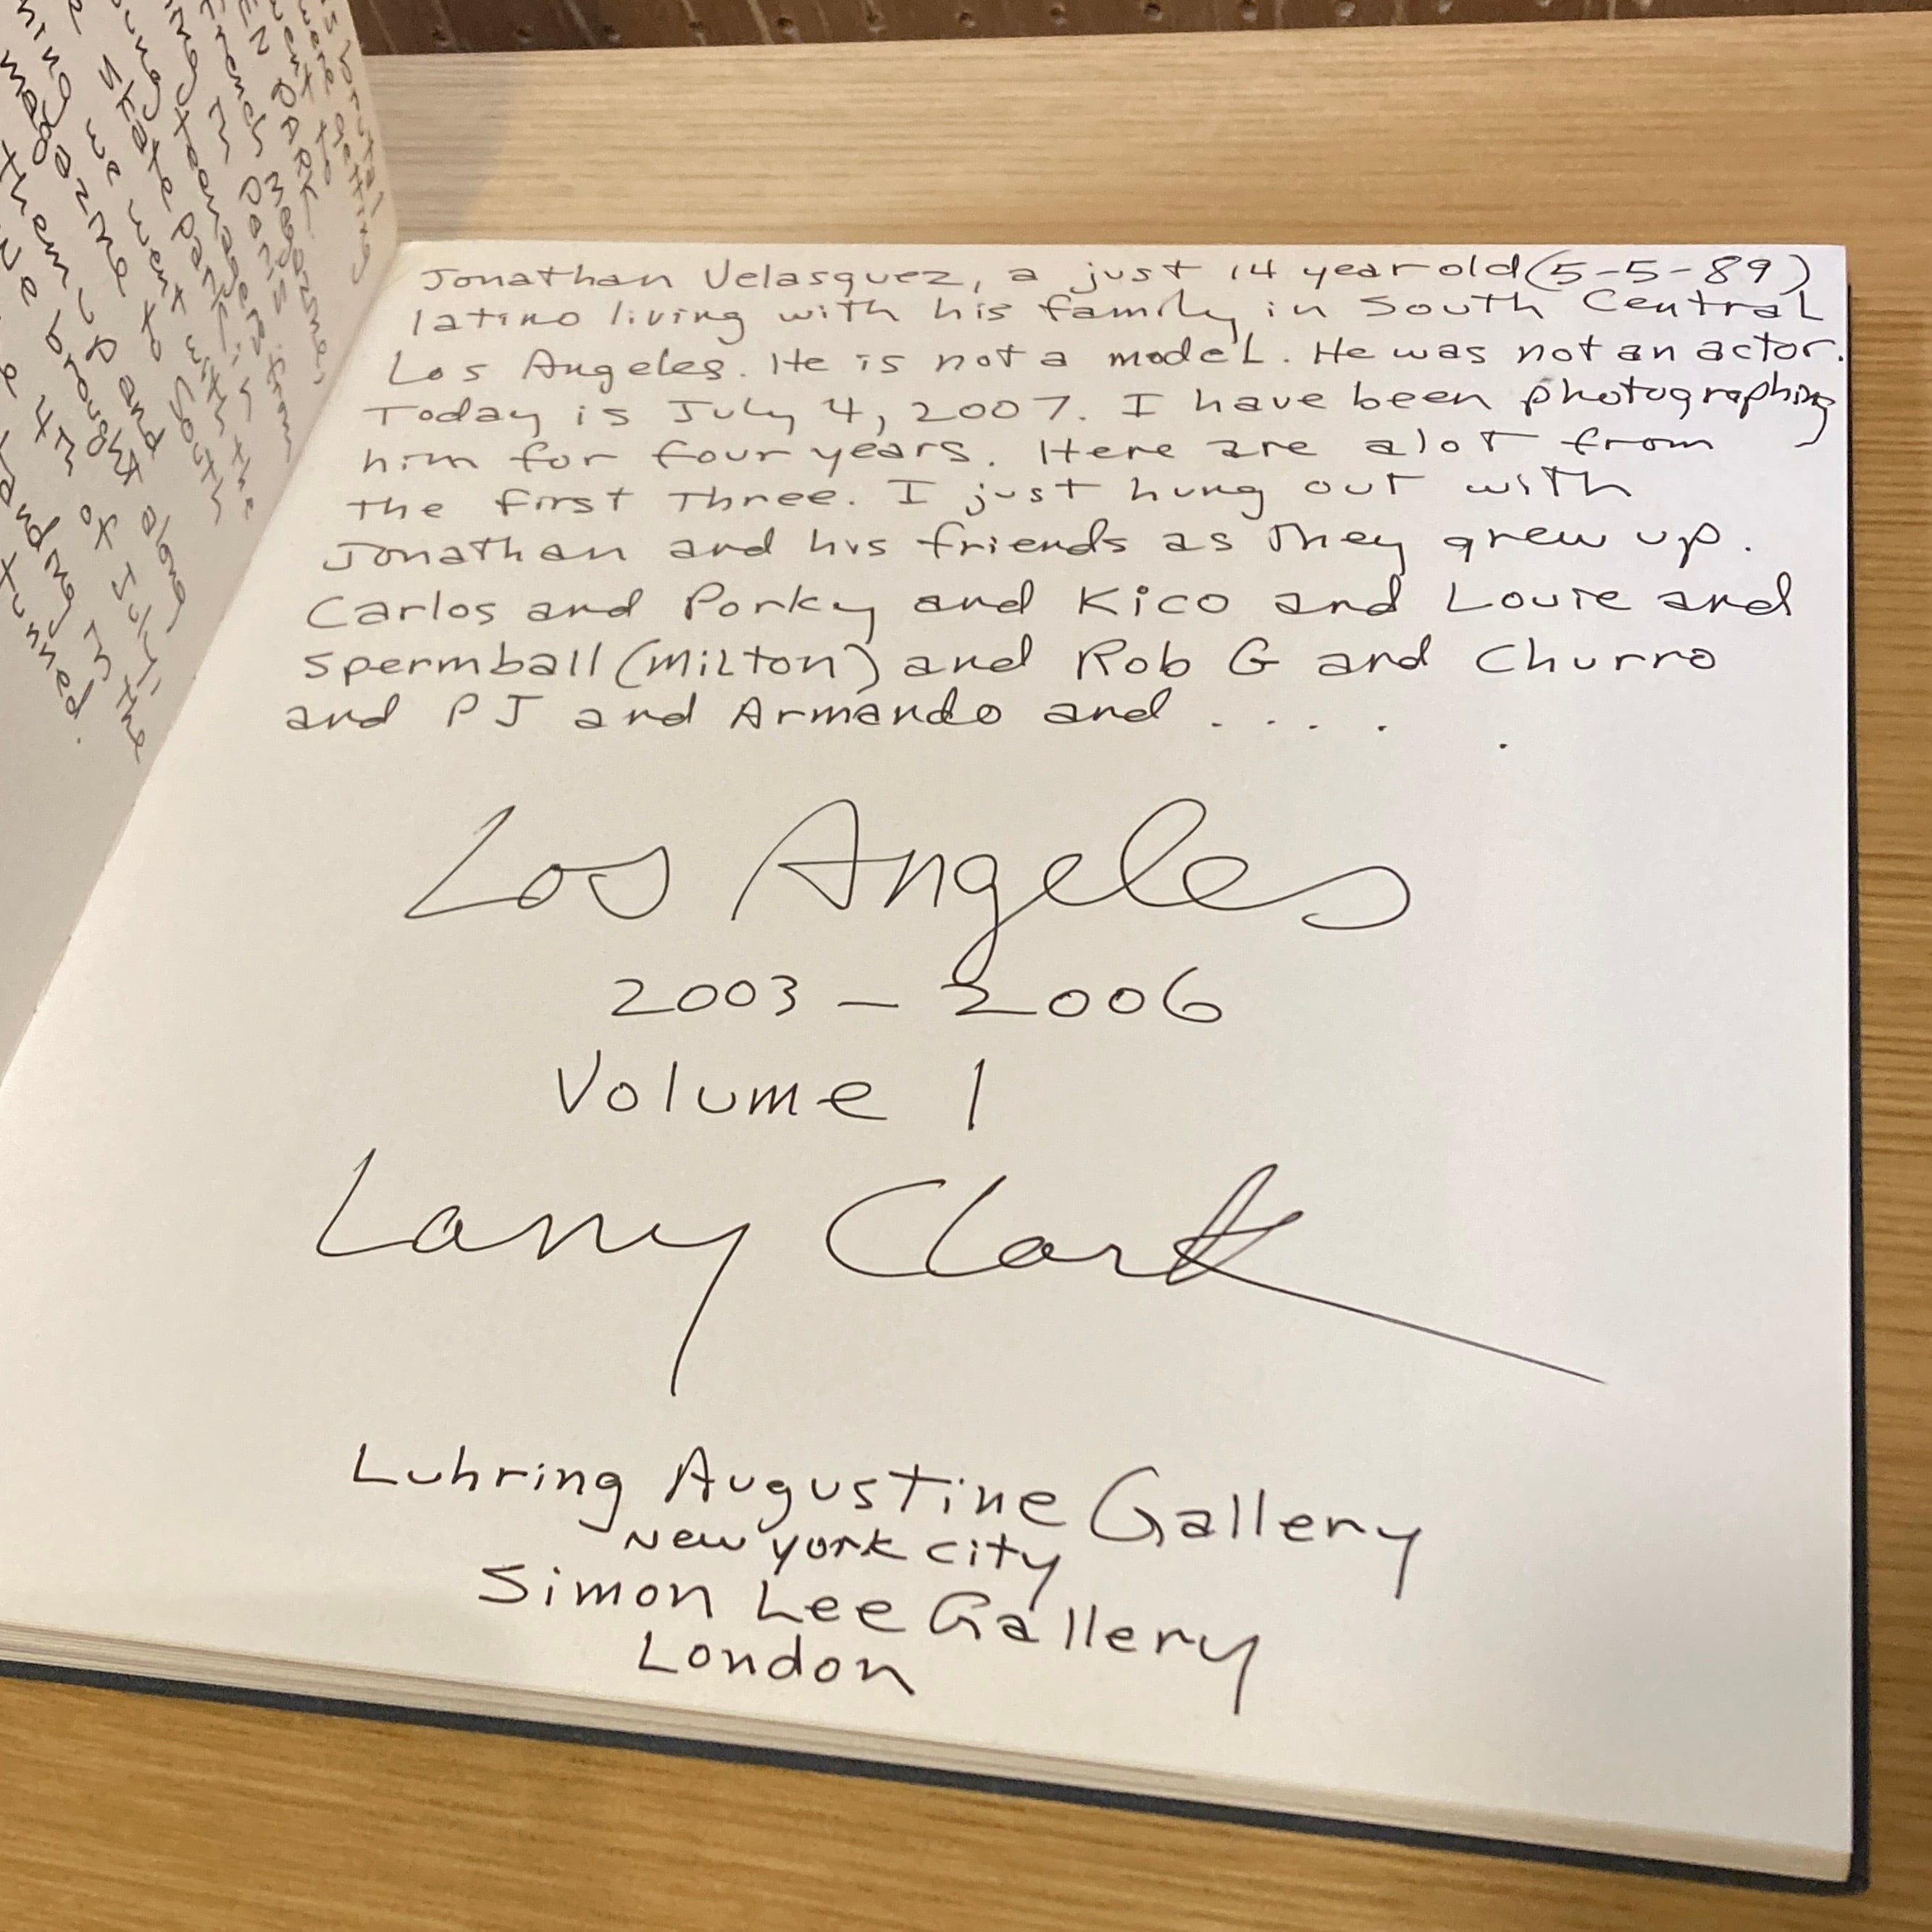 is brutal
were getting
went to
EN PARK
French magazine
in Paris
teenagers from
skatepark in
we went with the
magazine to South
them up and
brought along
4th of July
standing in the
tunned.
Jonathan Velasquez, a just 14 year old (5-5-89)
latino living with his family in South Central
Los Angeles. He is not a model. He was not an actor.
Today is July 4, 2007. I have been photographing
him for four years. Here are alot from
the first three. I just hung out with
Jonathan and his friends as they grew up.
Carlos and Porky and Kico and Louie and
spermball (Milton) and Rob G and Churro
and PJ and Armando and . . . . .
Los Angeles
2003 – 2006
Volume 1
Larry Clark
Luhring Augustine Gallery
New York City
Simon Lee Gallery
London